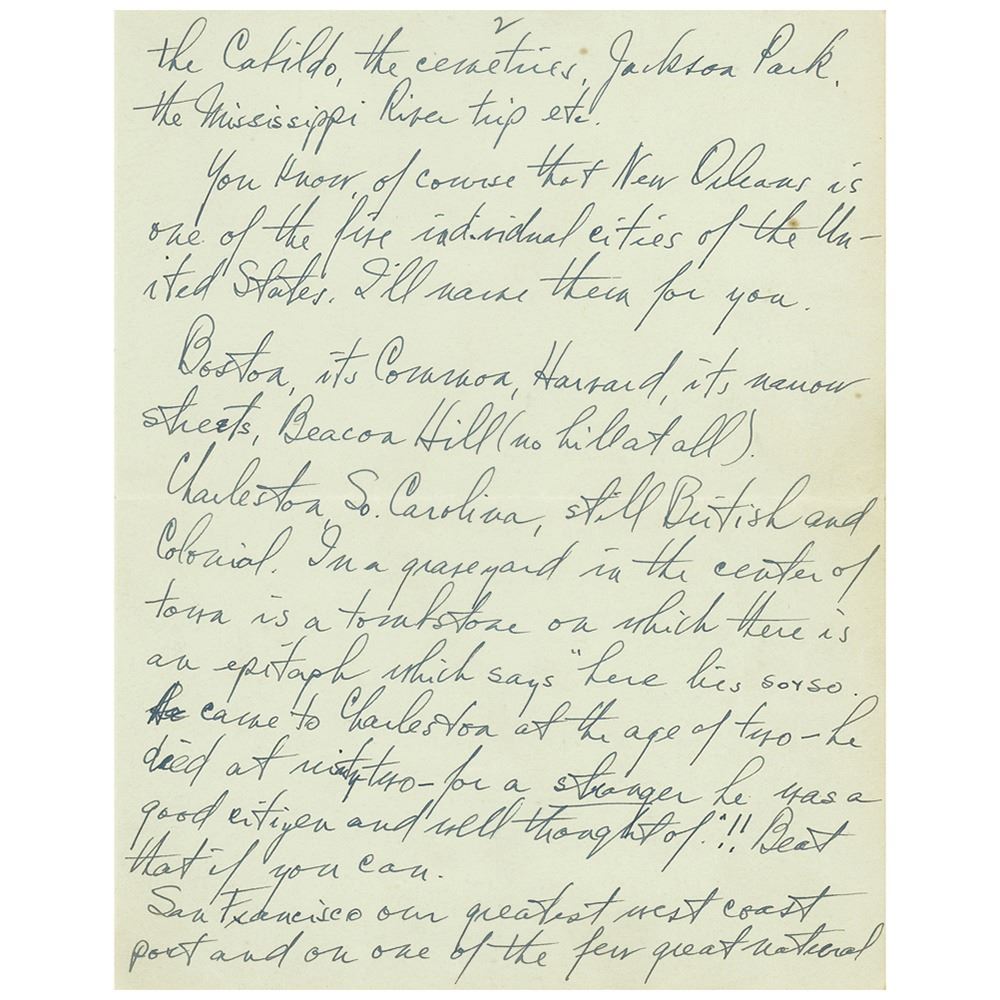 2
the Cabildo, the cemetries, Jackson Park,
the Mississippi River trip etc.
You know, of course that New Orleans is
one of the five individual cities of the Un-
ited States. I'll name them for you.
Boston, its Common, Harvard, its narrow
streets, Beacon Hill (no hill at all).
Charleston, So. Carolina, still British and
Colonial. In a graveyard in the center of
town is a tombstone on which there is
an epitaph which says "here lies so+so.
He came to Charleston at the age of two - he
died at ninty two - for a stranger he was a
good citizen and well thought of."!! Beat
that if you can.
San Francisco our greatest west coast
port and on one of the few great natural